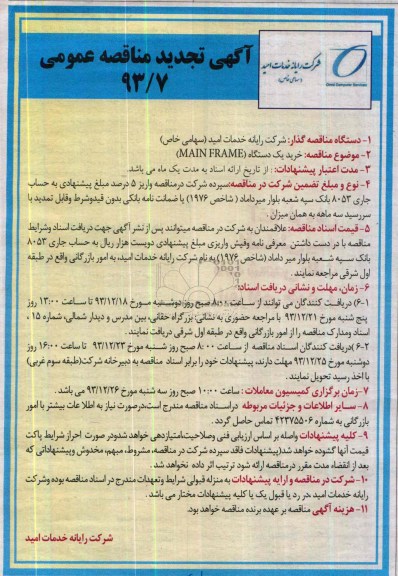 آگهی تجدید مناقصه عمومی
۹۳/۷
شرکت رایانه خدمات امید
(سهامی خاص)
Omid Computer Services
۱- دستگاه مناقصه گذار: شرکت رایانه خدمات امید (سهامی خاص)
۲- موضوع مناقصه: خرید یک دستگاه (MAIN FRAME)
۳- مدت اعتبار پیشنهادات: از تاریخ ارائه اسناد به مدت یک ماه می باشد.
۴- نوع و مبلغ تضمین شرکت در مناقصه:سپرده شرکت درمناقصه واریز ۵ درصد مبلغ پیشنهادی به حساب
جاری ۸۰۵۳ بانک سپه شعبه بلوار میرداماد (شاخص ۱۹۷۶) یا ضمانت نامه بانکی بدون قیدوشرط وقابل تمدید با
سررسید سه ماهه به همان میزان .
۵- قیمت اسناد مناقصه: علاقمندان به شرکت در مناقصه میتوانند پس از نشر آگهی جهت دریافت اسناد وشرایط
مناقصه با در دست داشتن معرفی نامه وفیش واریزی مبلغ پیشنهادی دویست هزار ریال به حساب جاری ۸۰۵۳
بانک سپه شعبه بلوار میر داماد (شاخص ۱۹۷۶) به نام شرکت رایانه خدمات امید، به امور بازرگانی واقع در طبقه
اول شرقی مراجعه نمایند .
۶- زمان، مهلت و نشانی دریافت اسناد:
۶-۱) دریافت کنندگان می توانند از ساعت ۸:۰۰ صبح روز دوشنبه مورخ ۹۳/۱۲/۱۸ تا ساعت ۱۳:۰۰ روز
پنج شنبه مورخ ۹۳/۱۲/۲۱ با مراجعه حضوری به نشانی: بزرگراه حقانی، بین مدرس و دیدار شمالی، شماره ۱۵ ،
اسناد ومدارک مناقصه را از امور بازرگانی واقع در طبقه اول شرقی دریافت نمایند .
۶-۲)دریافت کنندگان اسناد مناقصه از ساعت ۸:۰۰ صبح روز شنبه مورخ ۹۳/۱۲/۲۳ تا ساعت ۱۶:۰۰ روز
دوشنبه مورخ ۹۳/۱۲/۲۵ مهلت دارند، پیشنهادات خود را برابر اسناد مناقصه به دبیرخانه شرکت(طبقه سوم غربی)
با اخذ رسید تحویل نمایند.
۷-زمان برگزاری کمیسیون معاملات : ساعت ۱۰:۰۰ صبح روز سه شنبه مورخ ۹۳/۱۲/۲۶ می باشد .
۸- سایر اطلاعات و جزئیات مربوطه دراسناد مناقصه مندرج است،درصورت نیاز به اطلاعات بیشتر با امور
بازرگانی به شماره ۴۲۳۷۵۵۰۶ تماس حاصل گردد .
۹- کلیه پیشنهادات واصله بر اساس ارزیابی فنی وصلاحیت،امتیازدهی خواهد شدودر صورت احراز شرایط پاکت
قیمت آنها گشوده خواهد شد(پیشنهادات فاقد سپرده شرکت در مناقصه، مشروط، مبهم، مخدوش وپیشنهاداتی که
بعد از انقضاء مدت مقرر درمناقصه ارائه شود ترتیب اثر داده نخواهد شد .
۱۰- شرکت در مناقصه و ارایه پیشنهادات به منزله قبولی شرایط وتعهدات مندرج در اسناد مناقصه بوده وشرکت
رایانه خدمات امید ،در رد یا قبول یک یا کلیه پیشنهادات مختار می باشد .
۱۱- هزینه آگهی مناقصه بر عهده برنده مناقصه خواهد بود.
شرکت رایانه خدمات امید